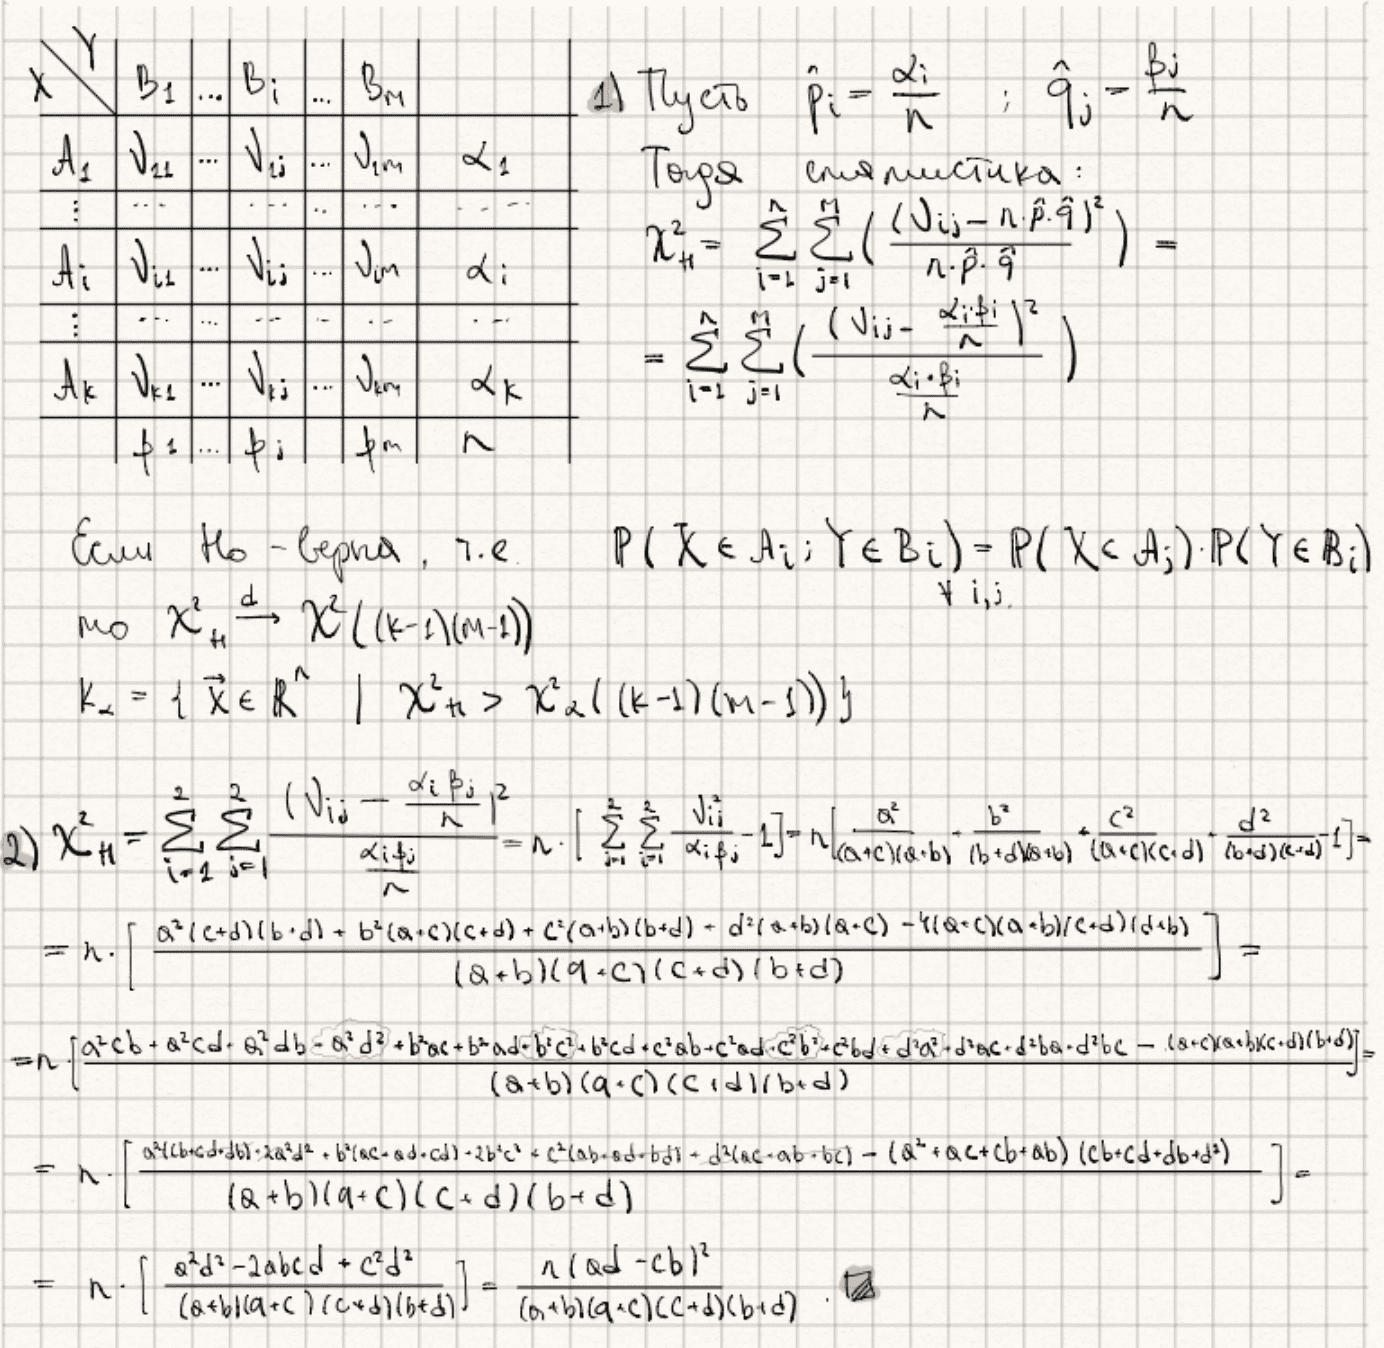 X \ Y | B₁ | ... | Bᵢ | ... | Bₘ |
A₁ | ν₁₁ | ... | ν₁ⱼ | ... | ν₁ₘ | α₁
⋮ | ... | ... | ... | .. | ... | ...
Aᵢ | νᵢ₁ | ... | νᵢⱼ | ... | νᵢₘ | αᵢ
⋮ | ... | ... | ... | ... | ... | ...
Aₖ | νₖ₁ | ... | νₖⱼ | ... | νₖₘ | αₖ
| β₁ | ... | βⱼ | | βₘ | n
1) Пусть p̂ᵢ = αᵢ/n ; q̂ⱼ = βⱼ/n
Тогда статистика:
χ²ₙ = Σ_{i=1}^{n} Σ_{j=1}^{m} ( (νᵢⱼ − n·p̂·q̂)² / (n·p̂·q̂) ) =
= Σ_{i=1}^{n} Σ_{j=1}^{m} ( (νᵢⱼ − αᵢ·βᵢ/n)² / (αᵢ·βᵢ/n) )
Если H₀ - верна, т.е. ℙ(X ∈ Aᵢ; Y ∈ Bᵢ) = ℙ(X ∈ Aⱼ)·ℙ(Y ∈ Bᵢ)
∀ i,j.
то χ²ₙ →ᵈ χ²((k-1)(m-1))
K_α = { X⃗ ∈ ℝⁿ | χ²ₙ > χ²_α((k-1)(m-1)) }
2) χ²ₙ = Σ_{i=1}^{2} Σ_{j=1}^{2} (νᵢⱼ − αᵢβⱼ/n)² / (αᵢβⱼ/n) = n·[ Σ_{j=1}^{2} Σ_{i=1}^{2} νᵢⱼ²/(αᵢβⱼ) − 1 ] = n[ a²/((a+c)(a+b)) + b²/((b+d)(a+b)) + c²/((a+c)(c+d)) + d²/((b+d)(c+d)) − 1 ] =
= n·[ (a²(c+d)(b+d) + b²(a+c)(c+d) + c²(a+b)(b+d) + d²(a+b)(a+c) − 4(a+c)(a+b)(c+d)(d+b)) / ((a+b)(a+c)(c+d)(b+d)) ] =
= n·[ (a²cb + a²cd + a²db + a²d² + b²ac + b²ad + b²c² + b²cd + c²ab + c²ad + c²b² + c²bd + d²a² + d²ac + d²ba + d²bc − (a+c)(a+b)(c+d)(b+d)) / ((a+b)(a+c)(c+d)(b+d)) ] =
= n·[ (a²(cb+cd+db) + 2a²d² + b²(ac+ad+cd) + 2b²c² + c²(ab+ad+bd) + d²(ac+ab+bc) − (a²+ac+cb+ab)(cb+cd+db+d²)) / ((a+b)(a+c)(c+d)(b+d)) ] =
= n·[ (a²d² − 2abcd + c²d²) / ((a+b)(a+c)(c+d)(b+d)) ] = n(ad − cb)² / ((a+b)(a+c)(c+d)(b+d)) .